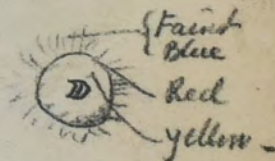 Faint
Blue
Red
yellow